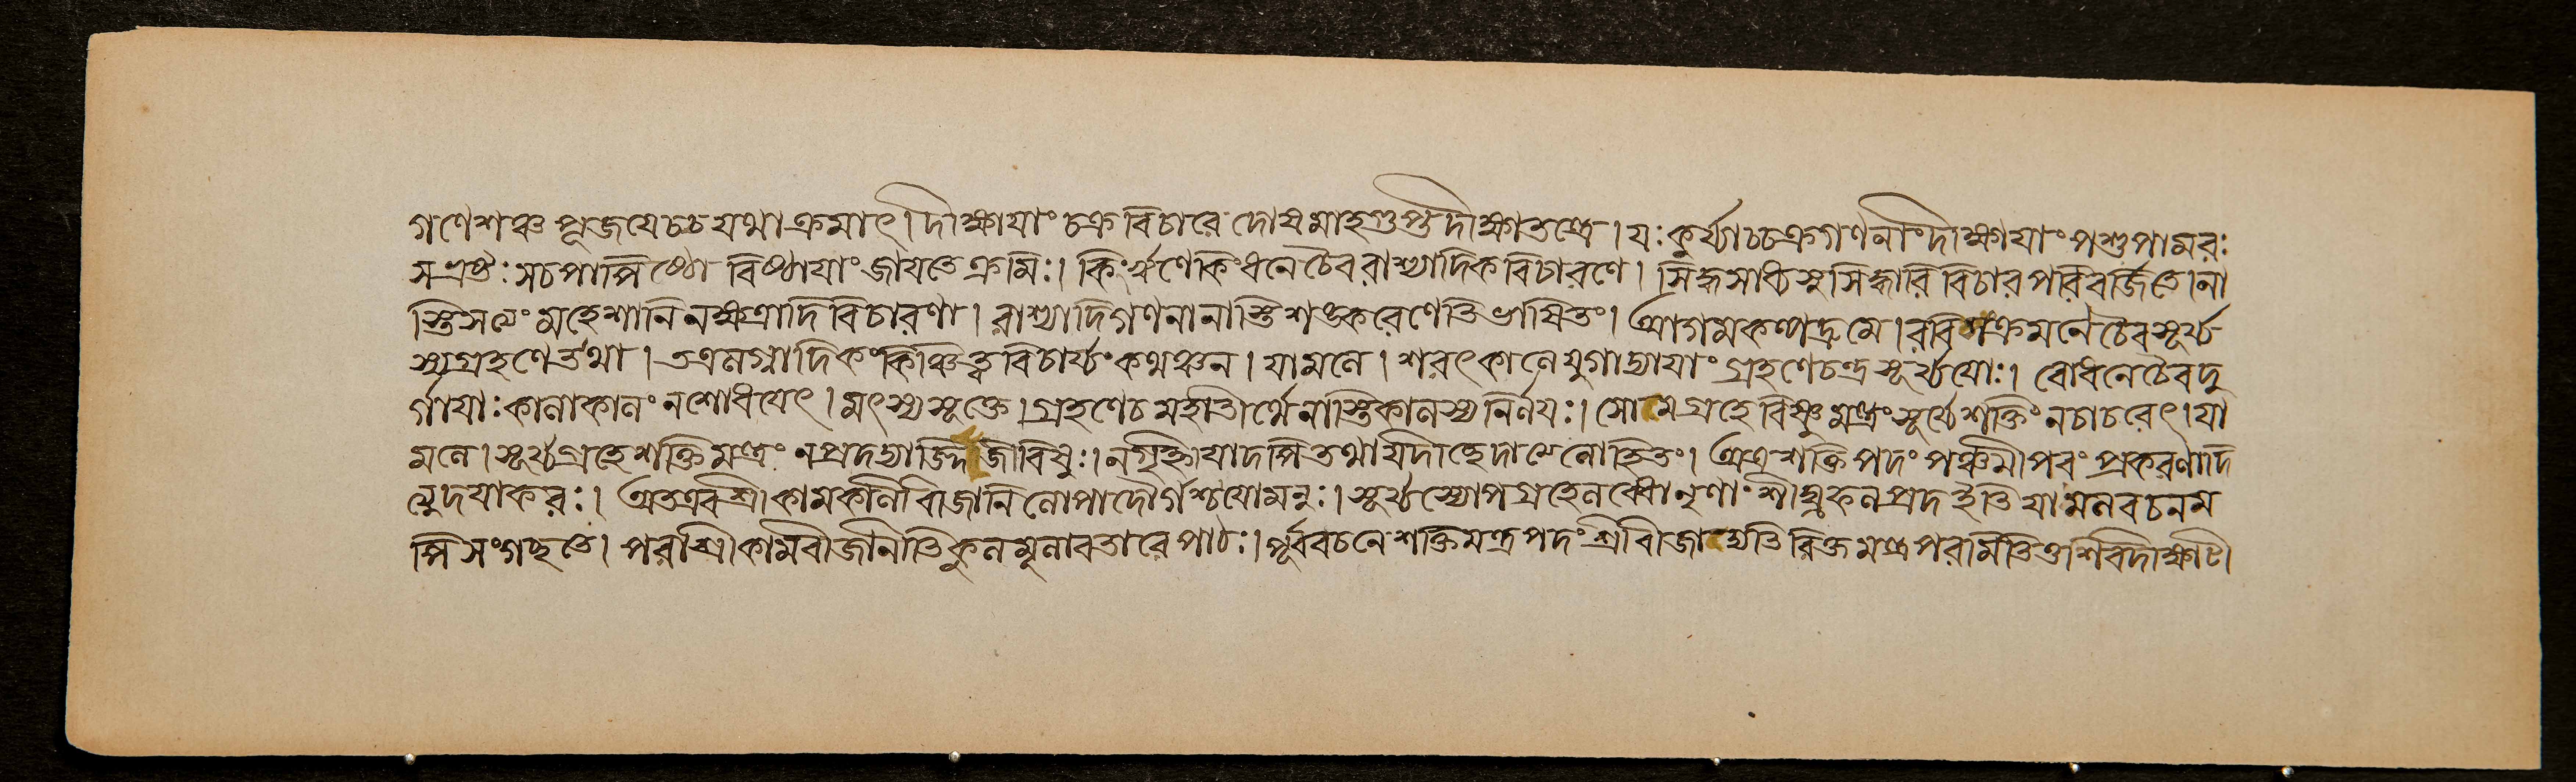 গণেশঞ্চ পূজয়েচ্চ যথাক্রমাৎ। দীক্ষায়াং চক্রবিচারে দোষমাহ গুপ্তদীক্ষাতন্ত্রে। যঃ কুর্য্যাচ্চক্রগণনাং দীক্ষায়াং পশুপামরঃ
স এষ্টঃ স চ পাপিষ্ঠো বিষ্ঠায়াং জায়তে ক্রমিঃ। কিং ধনে চৈব রাশ্যাদিক বিচারণে। সিদ্ধসাধ্যসুসিদ্ধারি বিচারপরিবর্জিতে। না
স্তি সত্যং মহেশানি নক্ষত্রাদি বিচারণা। রাশ্যাদিগণনা নাস্তি শঙ্করেণেতি ভাষিতং। আগমকল্পদ্রুমে। রবিসংক্রমনে চৈব সূর্য্য
স্য গ্রহণে তথা। তত্র লগ্নাদিকং কিঞ্চিন্ন বিচার্য্যং কথঞ্চন। যামলে। শরৎকালে যুগাদ্যায়াং গ্রহণে চন্দ্রসূর্য্যয়োঃ। বোধনে চৈব দু
র্গায়াঃ কালাকালং ন শোধয়েৎ। মৎস্যসূক্তে। গ্রহণে চ মহাতীর্থে নাস্তি কালস্য নির্ণয়ঃ। সোমগ্রহে বিষ্ণুমন্ত্রং সূর্য্যে শক্তিং ন চাচরেৎ। যা
মলে। সূর্য্যগ্রহে শক্তিমন্ত্রং ন প্রদদ্যাজ্জিজীবিষুঃ। ন গৃহ্নীয়াদপি তথা যদীচ্ছেদাত্মনো হিতং। অত্র শক্তিপদং পঞ্চমীপরং প্রকরণাদি
ত্যুদয়াকরঃ। অতএব শ্রীকামকলিবীজানি সূর্য্যস্যোপগ্রহে নৃণাং শীঘ্রফলপ্রদ ইতি যামলবচনম
পি সংগচ্ছতে। পরাশ্রীকামবীজানীতি কুলমূলাবতারে পাঠঃ। পূর্ববচনে শক্তিমন্ত্রপদং শ্রীবীজাদ্যতিরিক্তমন্ত্রপরমিতি তু শিবদীক্ষাটী